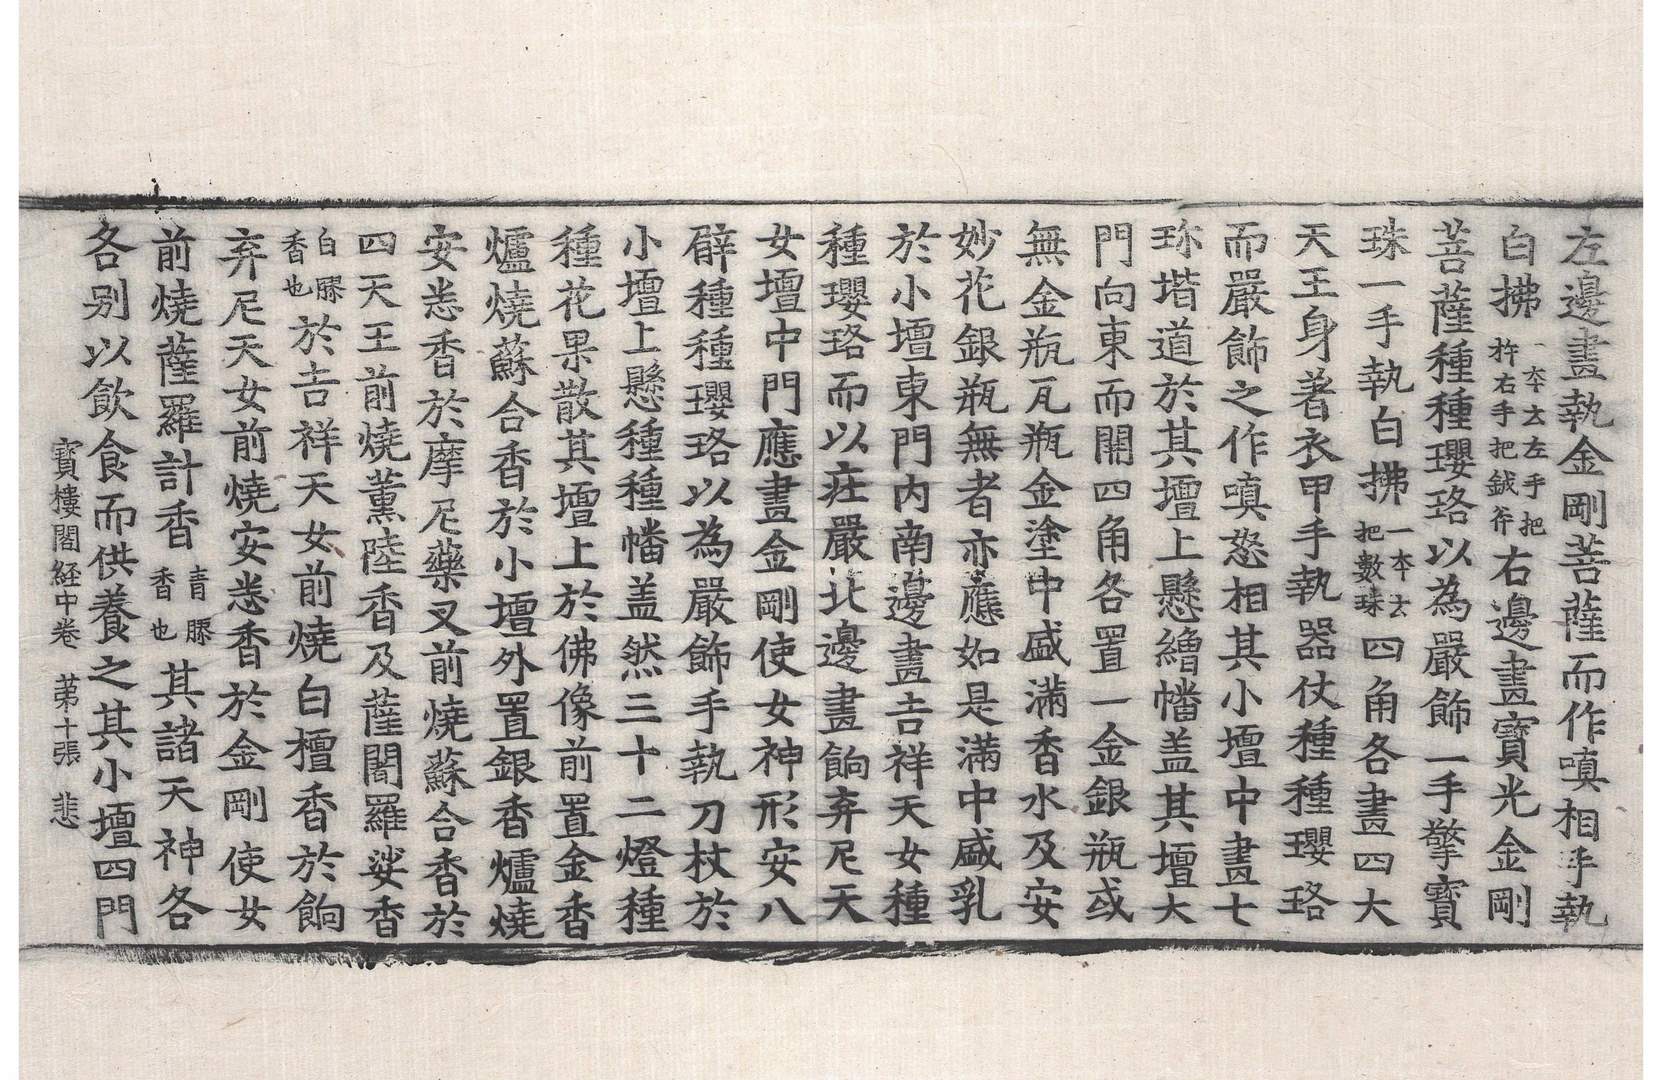 左邊畫執金剛菩薩而作嗔相手執
白拂一夲云左手把杵右手把鉞斧右邊畫寶光金剛
菩薩種種瓔珞以為嚴飾一手擎寶
珠一手執白拂一夲云把數珠四角各畫四大
天王身著衣甲手執器仗種種瓔珞
而嚴飾之作嗔怒相其小壇中畫七
珎堦道於其壇上懸繒幡盖其壇大
門向東而開四角各置一金銀瓶或
無金瓶瓦瓶金塗中盛滿香水及安
妙花銀瓶無者亦應如是滿中盛乳
於小壇東門内南邊畫吉祥天女種
種瓔珞而以莊嚴北邊畫餉弃尼天
女壇中門應畫金剛使女神形安八
臂種種瓔珞以為嚴飾手執刀杖於
小壇上懸種種幡盖然三十二燈種
種花果散其壇上於佛像前置金香
爐燒蘇合香於小壇外置銀香爐燒
安悉香於摩尼藥叉前燒蘇合香於
四天王前燒薰陸香及薩闍羅娑香
白膠香也於吉祥天女前燒白檀香於餉
弃尼天女前燒安悉香於金剛使女
前燒薩羅計香青膠香也其諸天神各
各别以飲食而供養之其小壇四門
寶樓閣経中卷 苐十張 悲